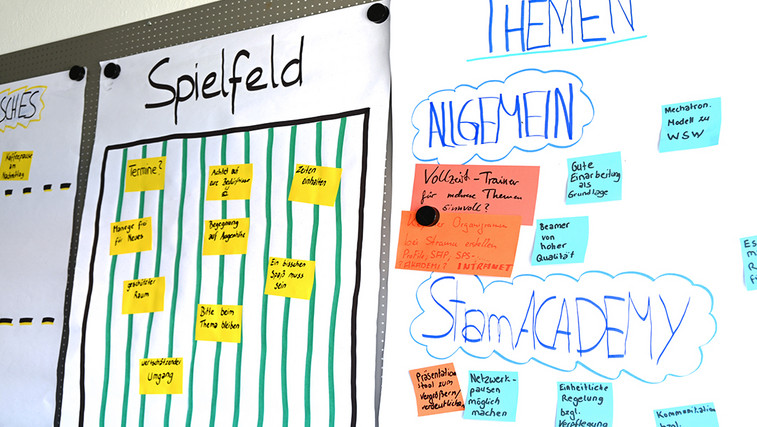 SCHES
Kaffeepause
am
Nachmittag
Spielfeld
Termine?
Achtet auf
eure Bedürfnisse
Zeiten
einhalten
Manege frei
für Neues
Begegnung
auf Augenhöhe
geschützter
Raum
Ein bisschen
Spaß muss
sein
Bitte beim
Thema bleiben
wertschätzender
Umgang
THEMEN
ALLGEMEIN
Mechatron.
Modell zu
WSW
Vollzeit-Trainer
für mehrere Themen
sinnvoll?
Gute
Einarbeitung
als
Grundlage
Organigramm
bei Strama erstellen
Profile, SAP, SPS-
INTRANET
Beamer
von
hoher
Qualität
Es
mi
R
fü
StamACADEMY
Präsentation
tool zum
Vergrößern/
verdeutlichen
Netzwerk-
pausen
möglich
machen
Einheitliche
Regelung
bzgl.
Verpflegung
Kommunikation
bzgl.